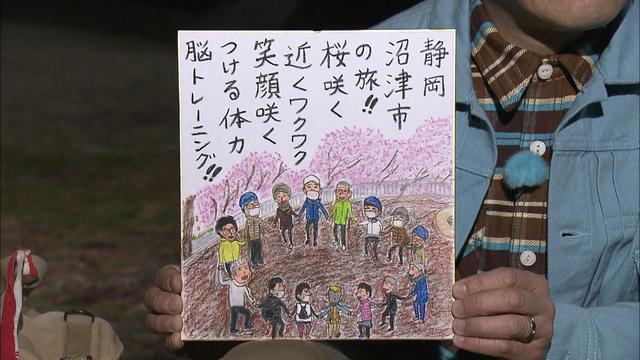 静岡
沼津市
の旅!!
桜咲く
近くワクワク
笑顔咲く
つける体力
脳トレーニング!!